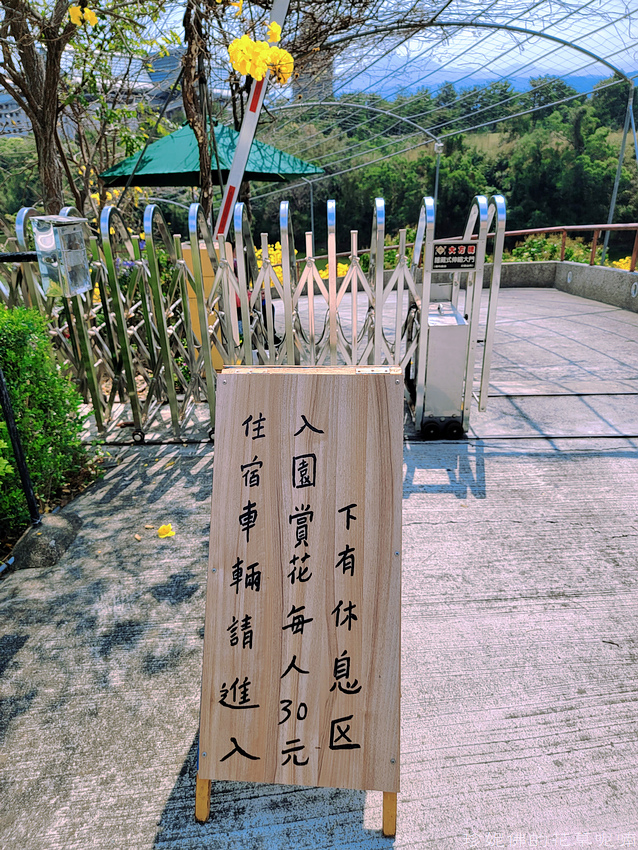 下有休息区
入園賞花每人30元
住宿車輛請進入
大方牌
隱藏式伸縮大門